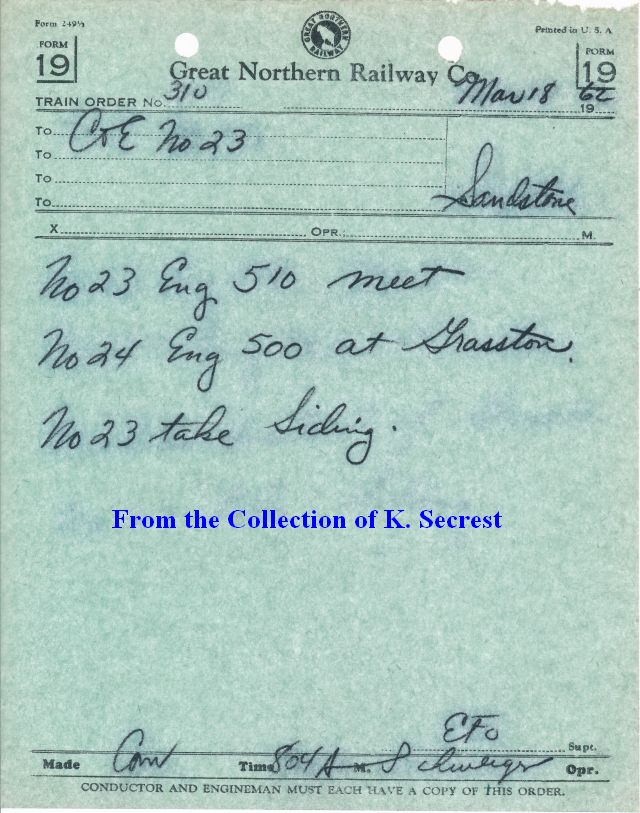 Form 249½
Printed in U. S. A
GREAT NORTHERN RAILWAY
FORM 19
FORM 19
Great Northern Railway Co.
TRAIN ORDER No. 310 Mar 18 1962
To C&E No 23
To
To
To Sandstone
X OPR.: M.
No 23 Eng 510 meet
No 24 Eng 500 at Grasston.
No 23 take Siding.
From the Collection of K. Secrest
EFO Supt.
Made Com Time 804 A M. Opr.
CONDUCTOR AND ENGINEMAN MUST EACH HAVE A COPY OF THIS ORDER.